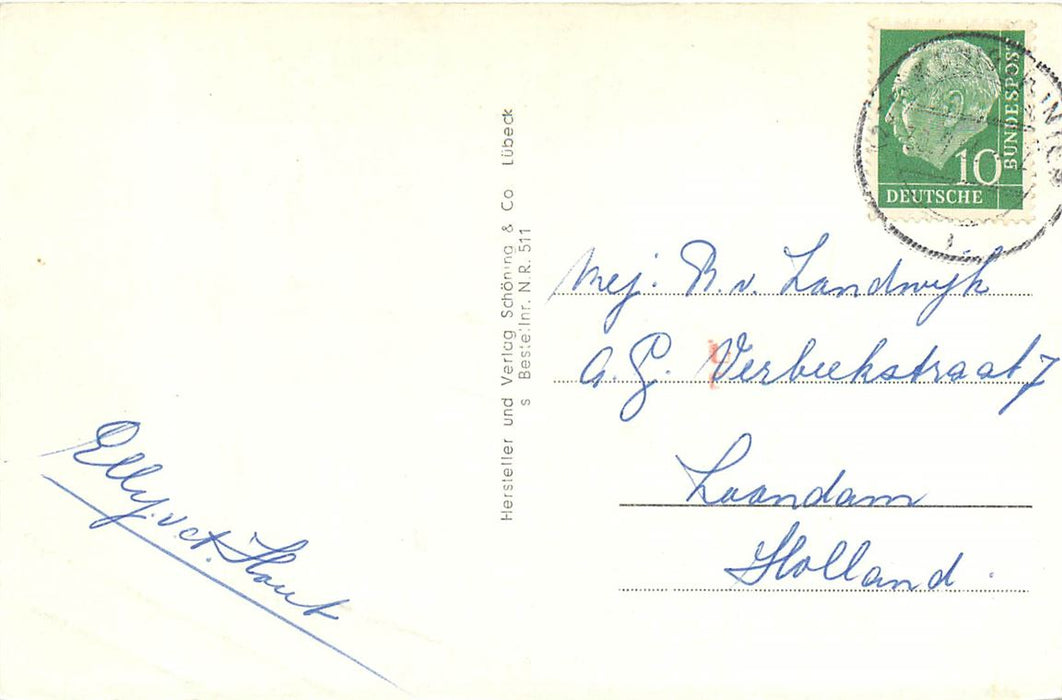 BUNDESPOST
10
DEUTSCHE
Hersteller und Verlag Schöning & Co Lübeck
s Bestellnr. N.R. 511
Mej. R. v. Zandwijk
A. G. Verbeekstraat 7
Zaandam
Holland.
Elly. v. d. Hout